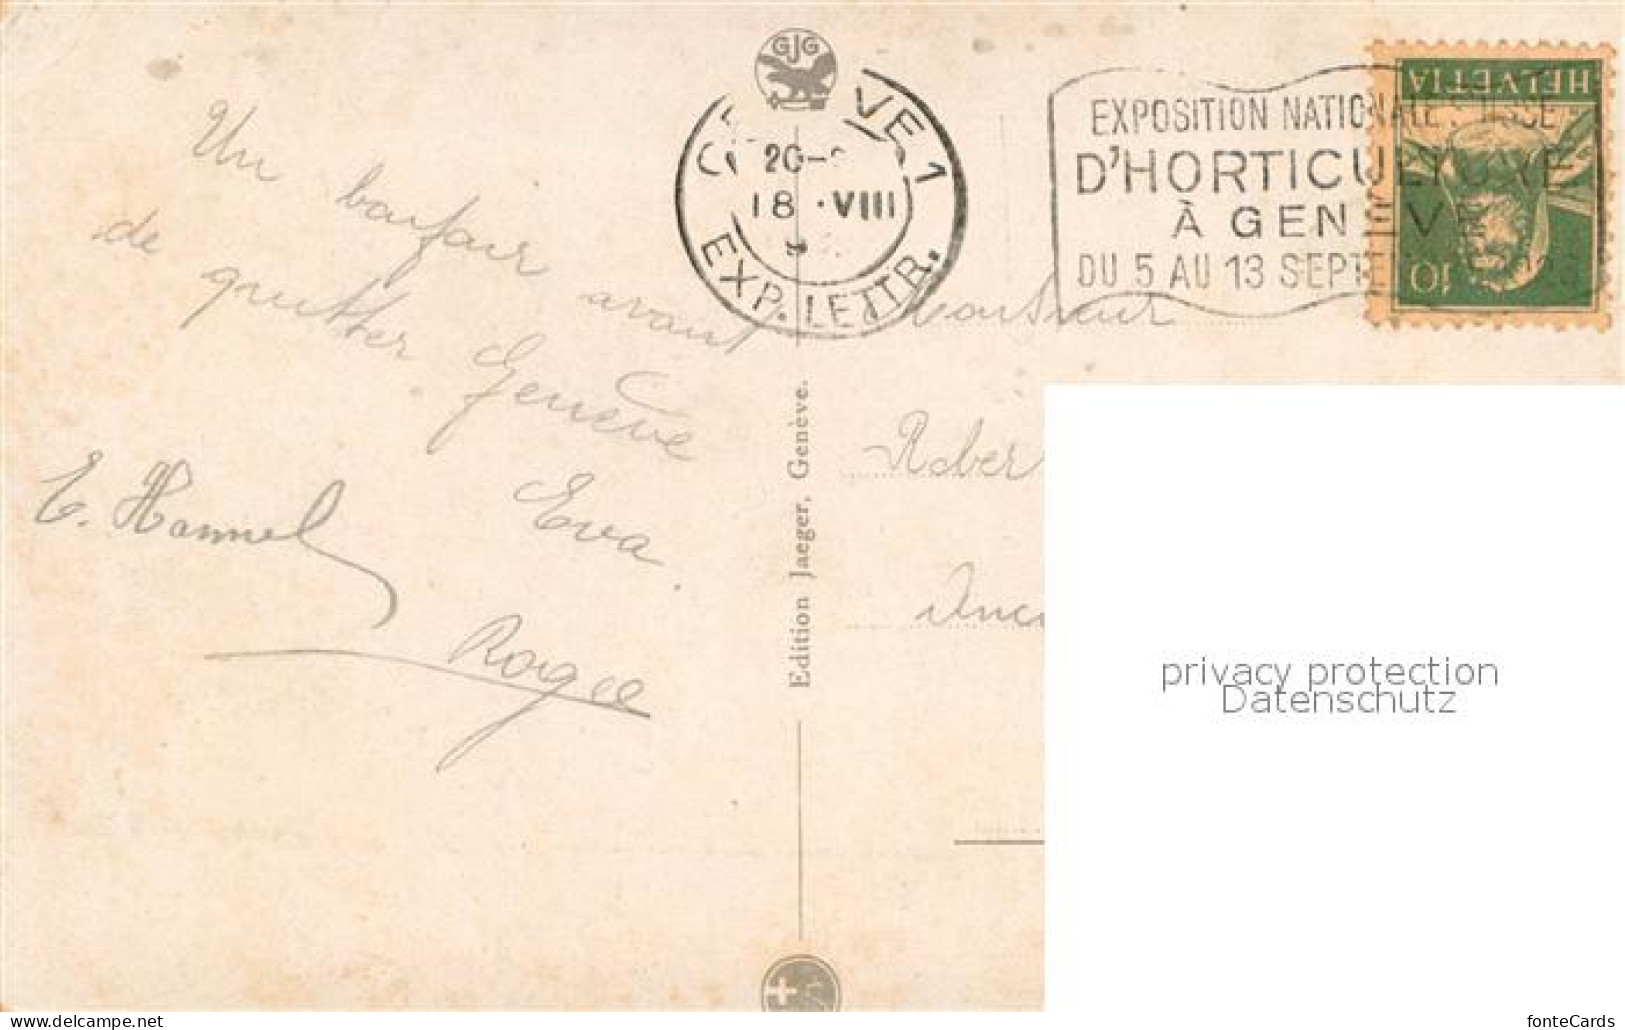 GJG
GENEVE 1
20-
18 . VIII
EXP. LETTR.
EXPOSITION NATIONALE SUISSE
D'HORTICULTURE
À GENÈVE
DU 5 AU 13 SEPTE
HELVETIA
10
Un bonjour avant
de quitter Genève
Eva.
E. Hammel
Roger
Edition Jaeger, Genève.
Rober
privacy protection
Datenschutz
www.delcampe.net
fonteCards